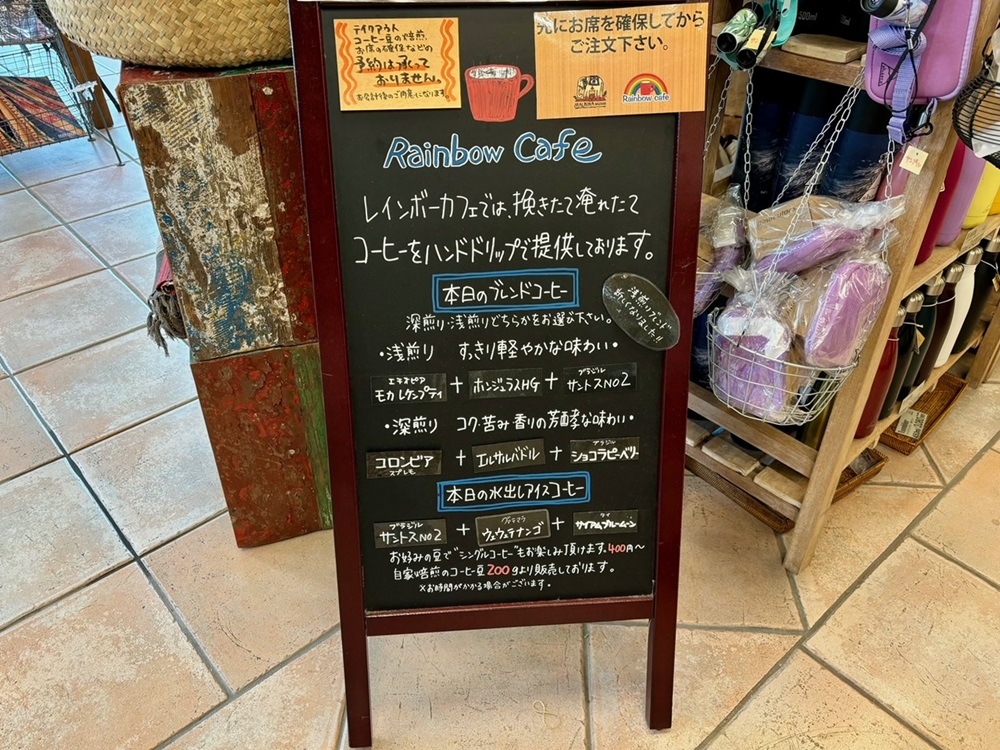 テイクアウト
コーヒー豆の焙煎
お席の確保などの
予約は承って
おりません。
お会計後のご用意になります
先にお席を確保してから
ご注文下さい。
Rainbow cafe
Rainbow Cafe
レインボーカフェでは、挽きたて淹れたて
コーヒーをハンドドリップで提供しております。
本日のブレンドコーヒー
浅煎りブレンド
新しくなりました!!
深煎り・浅煎りどちらかをお選び下さい。
・浅煎り すっきり軽やかな味わい・
エチオピア
モカレケンプティ + ホンジュラスHG + ブラジル サントスNO2
・深煎り コク・苦み香りの芳醇な味わい・
コロンビア スプレモ + エルサルバドル + ブラジル ショコラピーベリー
本日の水出しアイスコーヒー
ブラジル サントスNO2 + グァテマラ ウェウェテナンゴ + タイ サイアムブルームーン
お好みの豆で"シングルコーヒー"もお楽しみ頂けます。400円〜
自家焙煎のコーヒー豆200gより販売しております。
※お時間がかかる場合がございます。
500ml